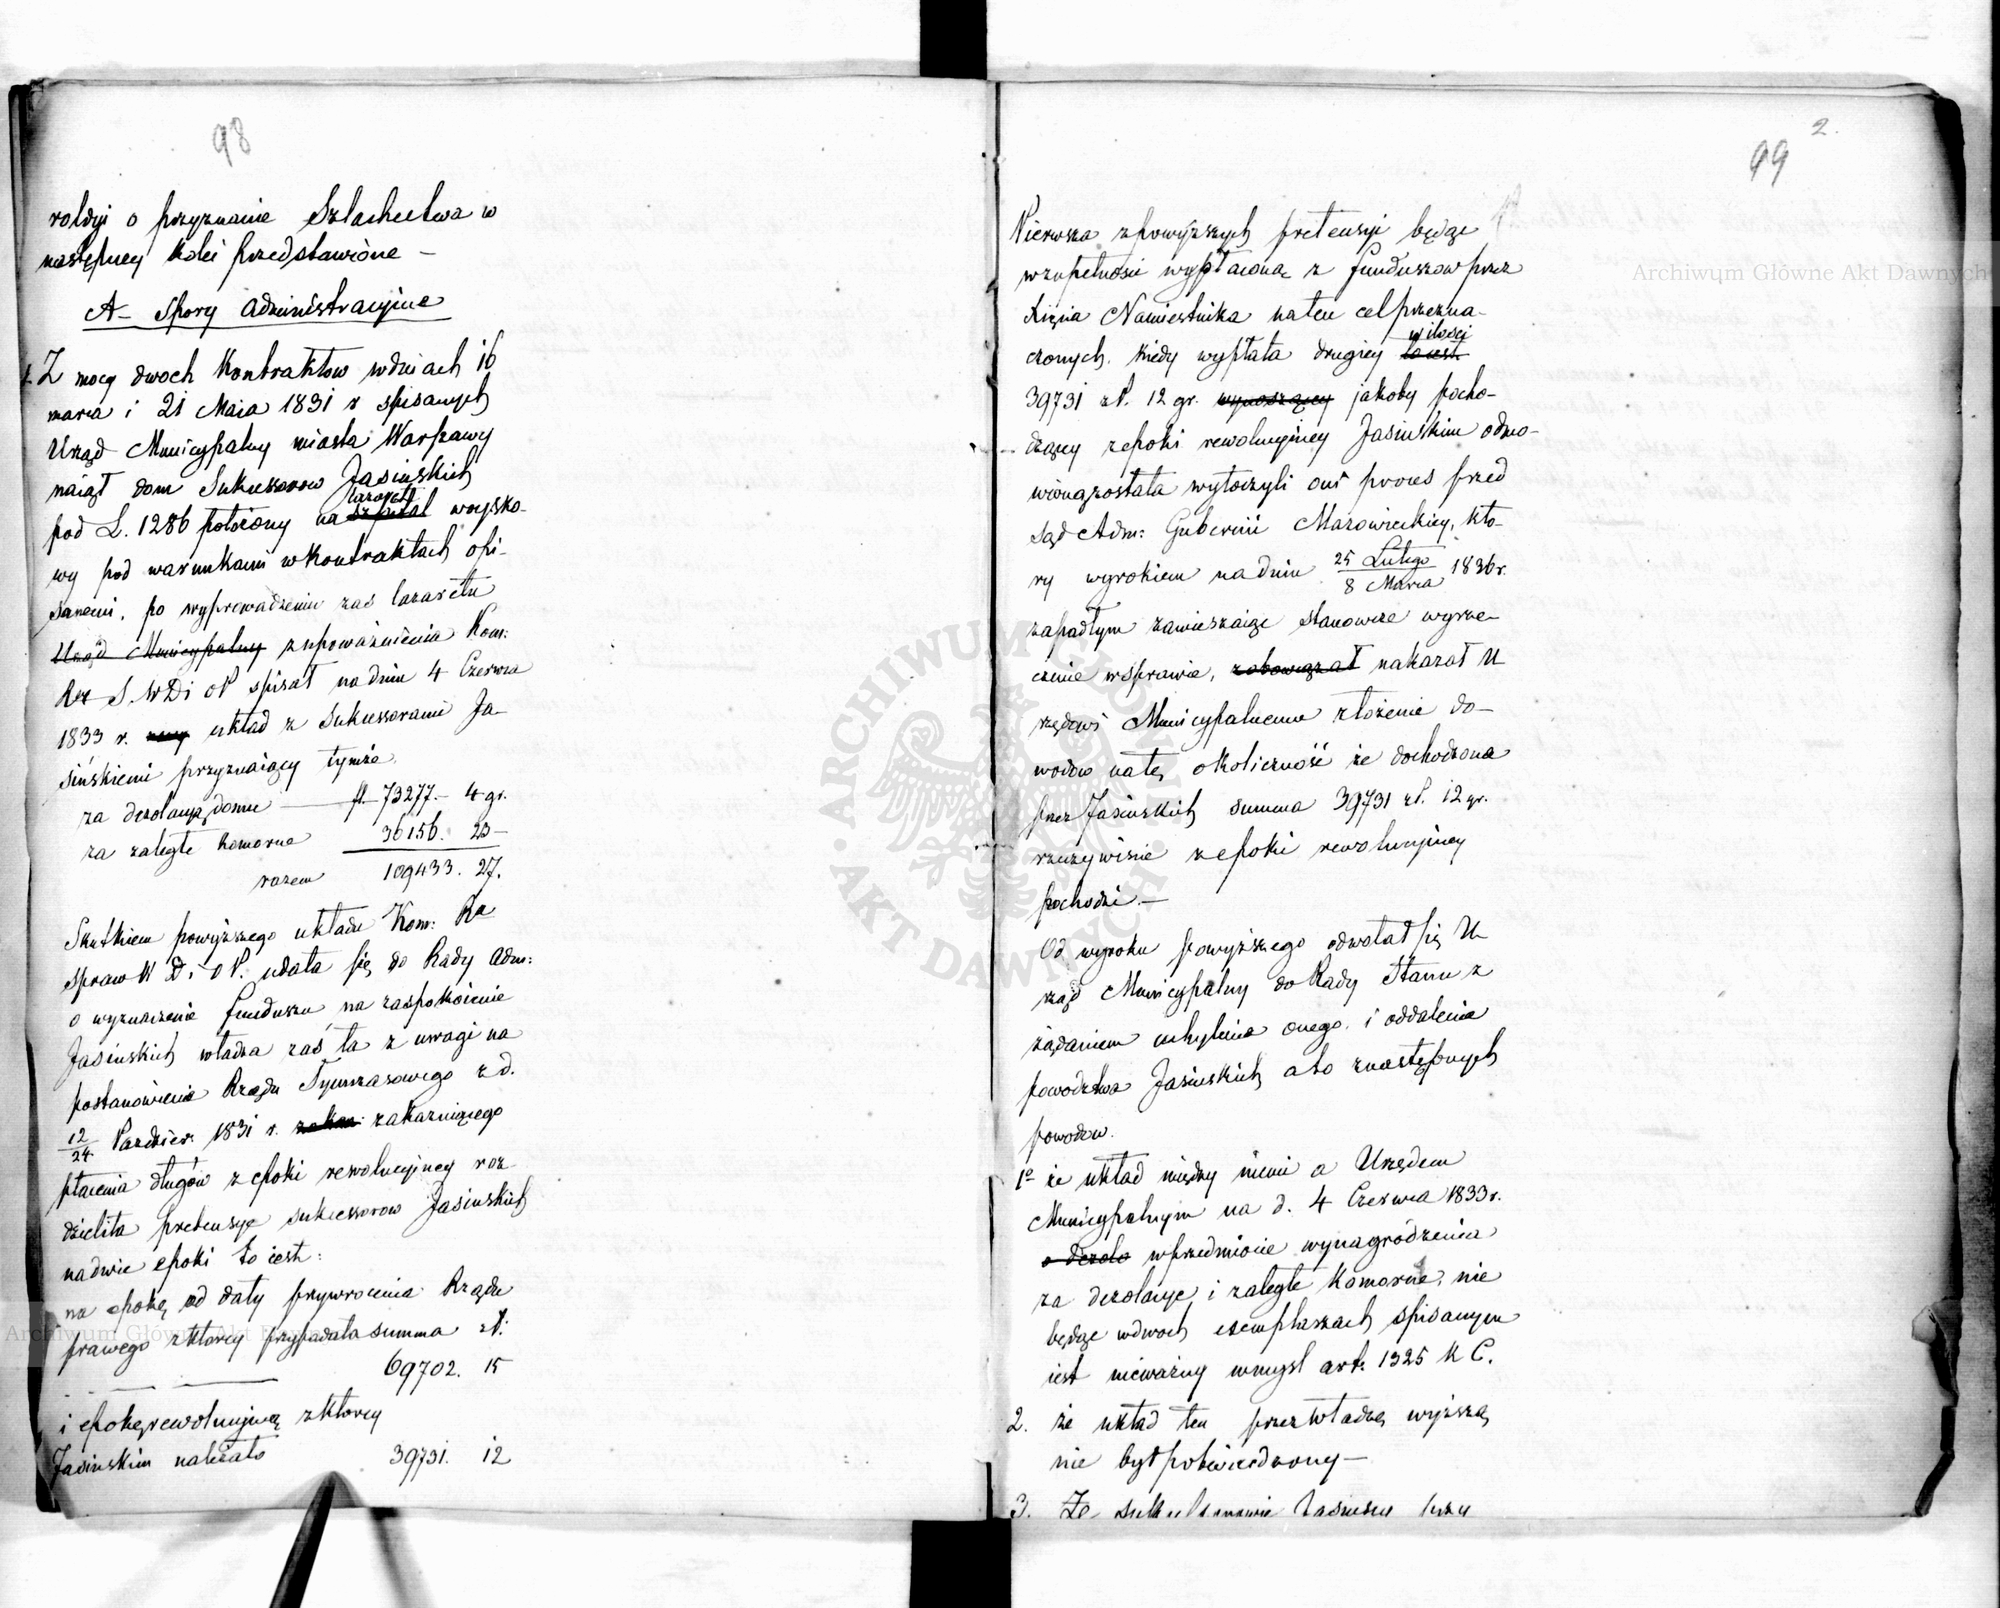 98
roldyi o przyznanie Szlachectwa w
następney kolei przedstawione —
A— Spory Administracyine
1. Z mocy dwoch Kontraktow wdniach 16
marca i 21 Maia 1831 r spisanych
Urząd Municypalny miasta Warszawy
naiął dom Sukcessorow Jasinskich
lazaret
pod L. 1286 położony na szpital woysko-
wy pod warunkami w Kontraktach opi-
sanemi, po wyprowadzeniu zaś lazaretu
Urząd Municypalny z upoważnienia Kom:
Rz S. W D i O P spisał na dniu 4 Czerwca
1833 r. układ z Sukcessorami Ja-
sińskiemi przyznaiący tymże
za dezolacyą domu — fl. 73277.— 4 gr.
za zaległe komorne 36156. 23—
razem 109433. 27.
Skutkiem powyższego układu Kom: Rz
Spraw W D i O P. udała się do Rady Adm:
o wyznaczenie funduszu na zaspokoienie
Jasinskich władza zaś ta z uwagi na
postanowienie Rządu Tymczasowego z d.
12/24 Paździer: 1831 r. zakazuiącego
płacenia długów z epoki rewolucyjney roz-
dzieliła pretensye sukcessorow Jasinskich
na dwie epoki to iest:
na epokę od daty przywrócenia Rządu
prawego z ktorey przypadała summa zł:
69702. 15
i epokę rewolucyiną z ktorey
Jasinskim należało 39731. 12
2.
99
Pierwsza z powyższych pretensyi będąc
w zupełności wypłaconą z funduszow przez
Xięcia Namiestnika na ten cel przezna-
w ilości
czonych. kiedy wypłata drugiey to iest
39731 zł. 12 gr. wynoszącey jakoby pocho-
dzącey z epoki rewolucyiney Jasinskim odmo-
wioną została wytoczyli oni proces przed
Sąd Adm: Gubernii Mazowieckiey, kto-
ry wyrokiem na dniu 25 Lutego/8 Marca 1836 r.
zapadłym zawieszaiąc stanowcze wyrze-
czenie w sprawie, zobowiązał nakazał U-
rzędowi Municypalnemu złożenie do-
wodow na tę okoliczność że dochodzona
przez Jasinskich summa 39731 zł. 12 gr.
rzeczywiście z epoki rewolucyiney
pochodzi.—
Od wyroku powyższego odwołał się U-
rząd Municypalny do Rady Stanu z
żądaniem uchylenia onego i oddalenia
powodztwa Jasinskich a to z następnych
powodow.
1o że układ między niemi a Urzędem
Municypalnym na d. 4 Czerwca 1833 r.
o dezola w przedmiocie wynagrodzenia
za dezolacye i zaległe Komorne, nie
będąc w dwoch exemplarzach spisanym
iest nieważny w mysl art: 1325 K C.
2. że układ ten przez władzę wyższą
nie był potwierdzony—
3. Że sukcessorowie Jasinscy przy